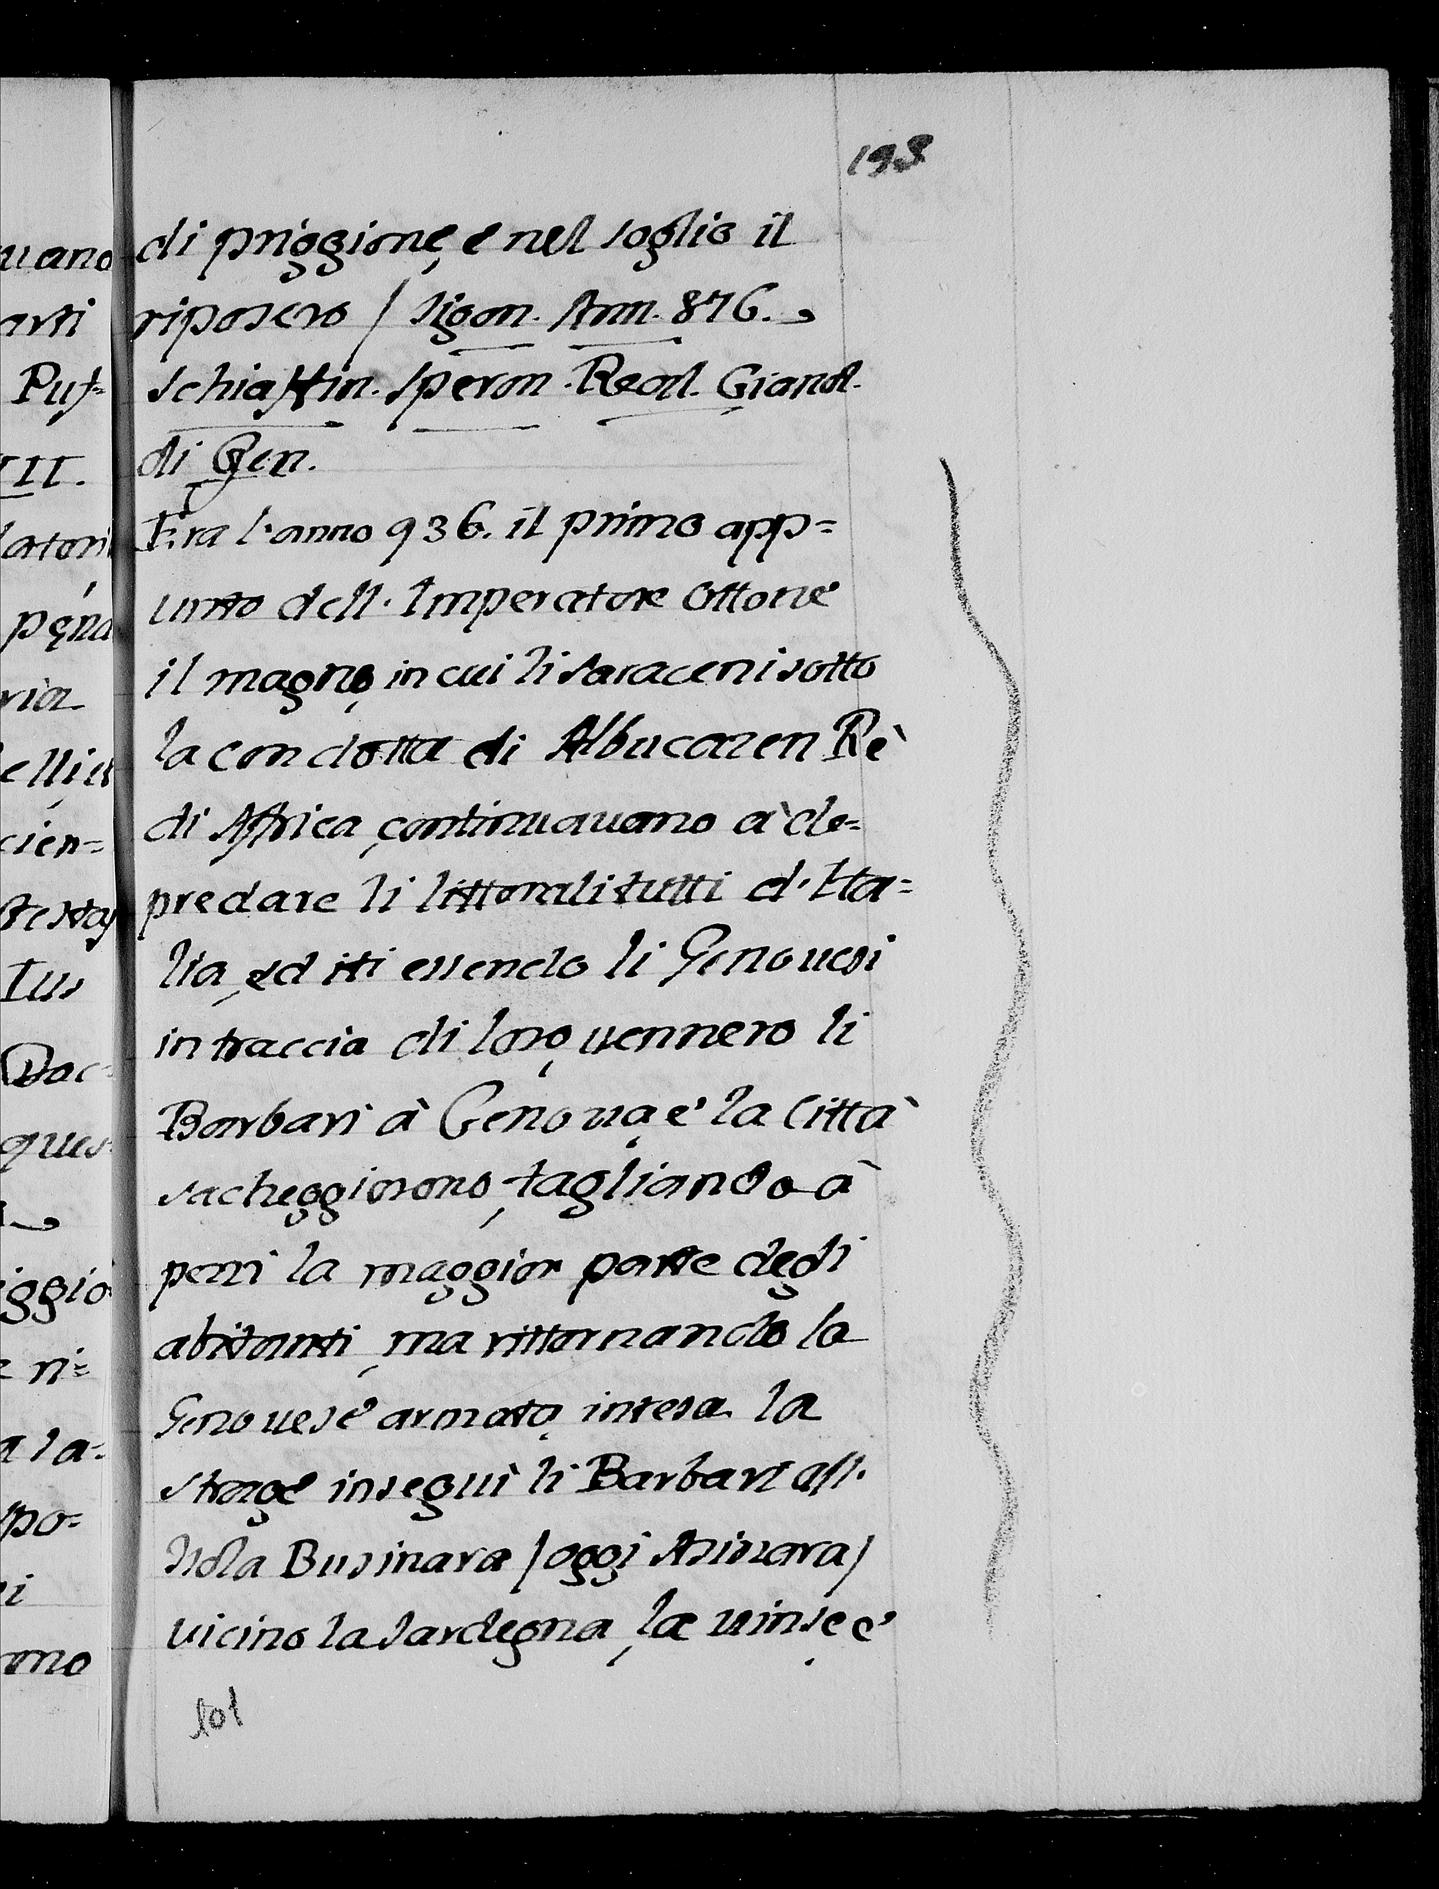 193
di priggione, e nel soglio il
riposero / Sigon. Ann. 876.
Schiaffin. Speron. Real. Grand.
di Gen.
Era l'anno 936. il primo app=
unto dell'Imperatore Ottone
il magno, in cui li Saraceni sotto
la condotta di Albucazen Rè
di Affrica, continuauano à de=
predare li littorali tutti d'Ita=
lia, ed iti essendo li Genouesi
in traccia di loro, uennero li
Barbari à Genoua, e la Città
sacheggiorono, tagliando à
pezzi la maggior parte degli
abitanti, ma rittornando la
Genouese armata, intesa la
strage inseguì li Barbari all'
Isola Businara / oggi Asinara /
uicino la Sardegna, la uinse, e
uano
arti
Puf=
III.
latori
pena
ria
ellid
cien=
Testa
Ius
Doc=
ques=
iggio
e ri=
a la=
po=
ni
ono